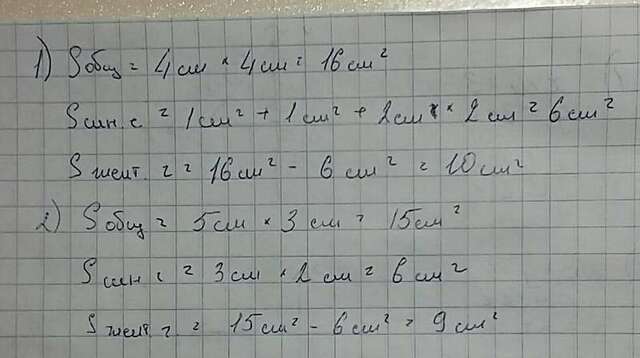 1) S общ = 4 см × 4 см = 16 см²
S син. с = 1 см² + 1 см² + 2 см × 2 см = 6 см²
S желт. = = 16 см² - 6 см² = 10 см²
2) S общ = 5 см × 3 см = 15 см²
S син с = 3 см × 2 см = 6 см²
S желт = = 15 см² - 6 см² = 9 см²